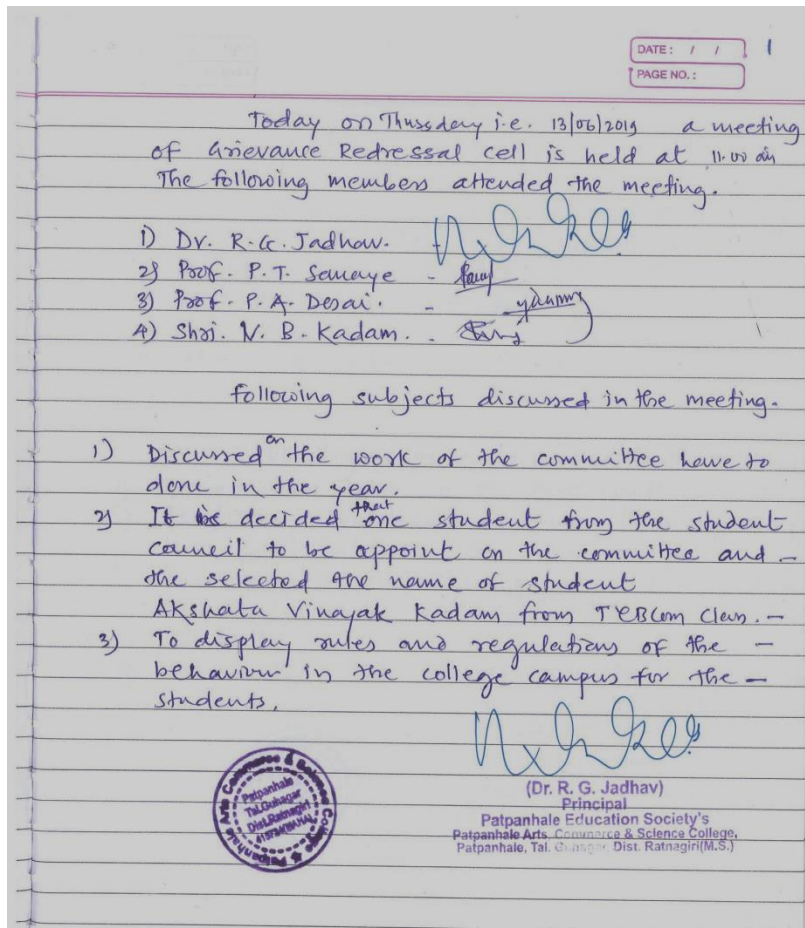 DATE: / / 1
PAGE NO.:
Today on Thussday i.e. 13/06/2019 a meeting
of Grievance Redressal cell is held at 11.00 am
The following members attended the meeting.
1) Dr. R. G. Jadhav.
2) Prof. P. T. -
3) Prof. P. A. Desai. -
4) Shri. N. B. Kadam. -
following subjects discussed in the meeting.
1) Discussed on the work of the committee have to
done in the year.
2) It is decided that one student from the student
council to be appoint on the committee and -
the selected the name of student
Akshata Vinayak Kadam from TYBCom Class. -
3) To display rules and regulations of the -
behaviour in the college campus for the -
students.
Patpanhale Arts Commerce & Science College
Patpanhale
Tal.Guhagar
Dist.Ratnagiri
(Dr. R. G. Jadhav)
Principal
Patpanhale Education Society's
Patpanhale Arts, Commerce & Science College,
Patpanhale, Tal. Guhagar, Dist. Ratnagiri(M.S.)